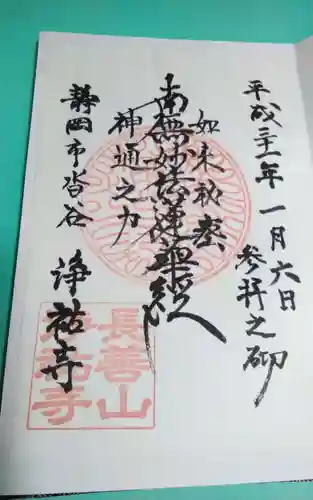 平成三十一年一月六日
参拝之砌
如来秘密
南無妙法蓮華経
神通之力
静岡市沓谷
浄祐寺
長善山
浄祐寺